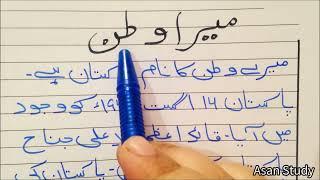 میرا وطن
میرے وطن کا نام پاکستان ہے۔
پاکستان 14 اگست کو وجود
میں آیا۔ قائد علی جناح
پاکستان کی
Asan Study